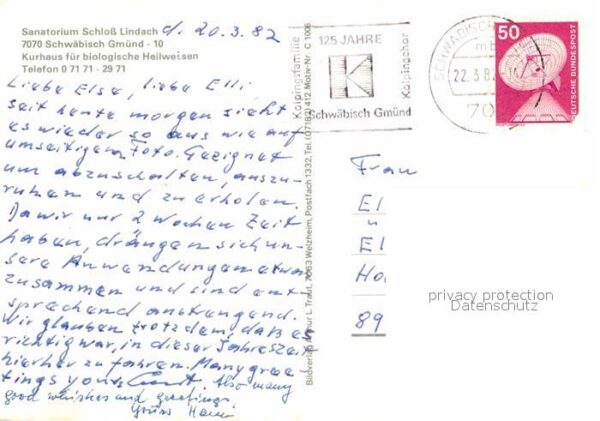 Sanatorium Schloß Lindach
7070 Schwäbisch Gmünd - 10
Kurhaus für biologische Heilweisen
Telefon 0 71 71 - 29 71
d. 20.3.82
Liebe Else, liebe Elli,
seit heute morgen sieht
es wieder so aus wie auf
umseitigem Foto. Geeignet
um abzuschalten, auszu-
ruhen und zu erholen.
Da wir nur 2 Wochen Zeit
haben, drängen sich un-
sere Anwendungen etwas
zusammen und sind ent-
sprechend anstrengend.
Wir glauben trotzdem, daß es
richtig war, in dieser Jahreszeit
hierher zu fahren. Many gree-
tings yours Also many
good whishes and greetings
Grüss
Kolpingsfamilie
125 JAHRE
K
Schwäbisch Gmünd
Kolpingchor
SCHWÄBISCH
22.3.8
70
50
DEUTSCHE BUNDESPOST
Bildverlag Arthur L. Traut, 7063 Welzheim, Postfach 1332, Tel. (07182) 412 Motiv-Nr. C 1006
Frau
El
u
El
Ho
89
privacy protection
Datenschutz